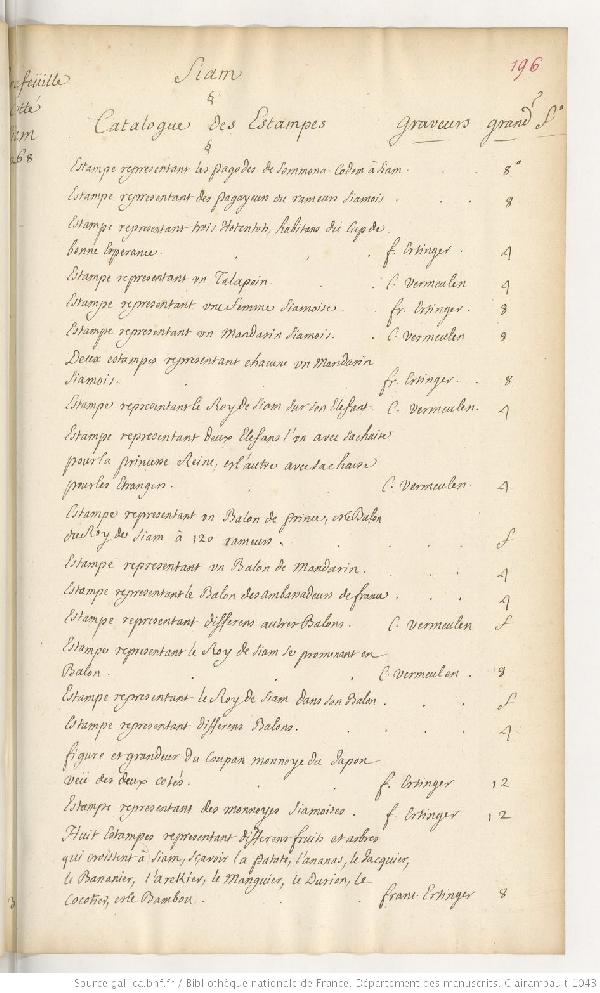 196
feüille
Siam
§
Catalogue des Estampes Graveurs grandr fo
§
68
Estampe representant les pagodes de Sommona-Codom à Siam. 8o
Estampe representant des pagayeurs ou rameurs siamois 8
Estampe representant trois Hotentots, habitans du Cap de
bonne Esperance. f. Ertinger. 4
Estampe representant vn Talapoin. C. Vermeulen 4
Estampe representant vne femme Siamoise. fr. Ertinger. 8
Estampe representant vn Mandarin Siamois. C. Vermeulen 8
Deux estampes representant chacune vn Mandarin
Siamois. fr. Ertinger. 8
Estampe representant le Roy de Siam sur son Elefant. C. Vermeulen. 4
Estampe representant deux Elefans l'vn avec sa chaise
pour la princesse Reine, et l'autre avec sa chaise
pour les Etrangers. C. Vermeulen. 4
Estampe representant vn Balon de prince, et le Balon
du Roy de Siam à 120 rameurs. f
Estampe representant vn Balon de Mandarin. 4
Estampe representant le Balon des ambassadeurs de france 4
Estampe representant differens autres Balons. C. Vermeulen f
Estampe representant le Roy de Siam se promenant en
Balon. C. Vermeulen. 8
Estampe representant le Roy de Siam dans son Balon. f
Estampe representant differens Balons. 4
figure et grandeur du Coupan monnoye du Japon
veüe des deux cotés. f. Ertinger 12
Estampe representant des monnoyes Siamoises. f. Ertinger 12
Huit Estampes representant differens fruits et arbres
qui croissent à Siam, sçavoir la patate, l'ananas, le Jacquier,
le Bananier, l'arekier, le Manguier, le Durion, le
Cocotier, et le Bambou. franc. Ertinger 8
Source gallica.bnf.fr / Bibliothèque nationale de France. Département des manuscrits. Clairambault 1043